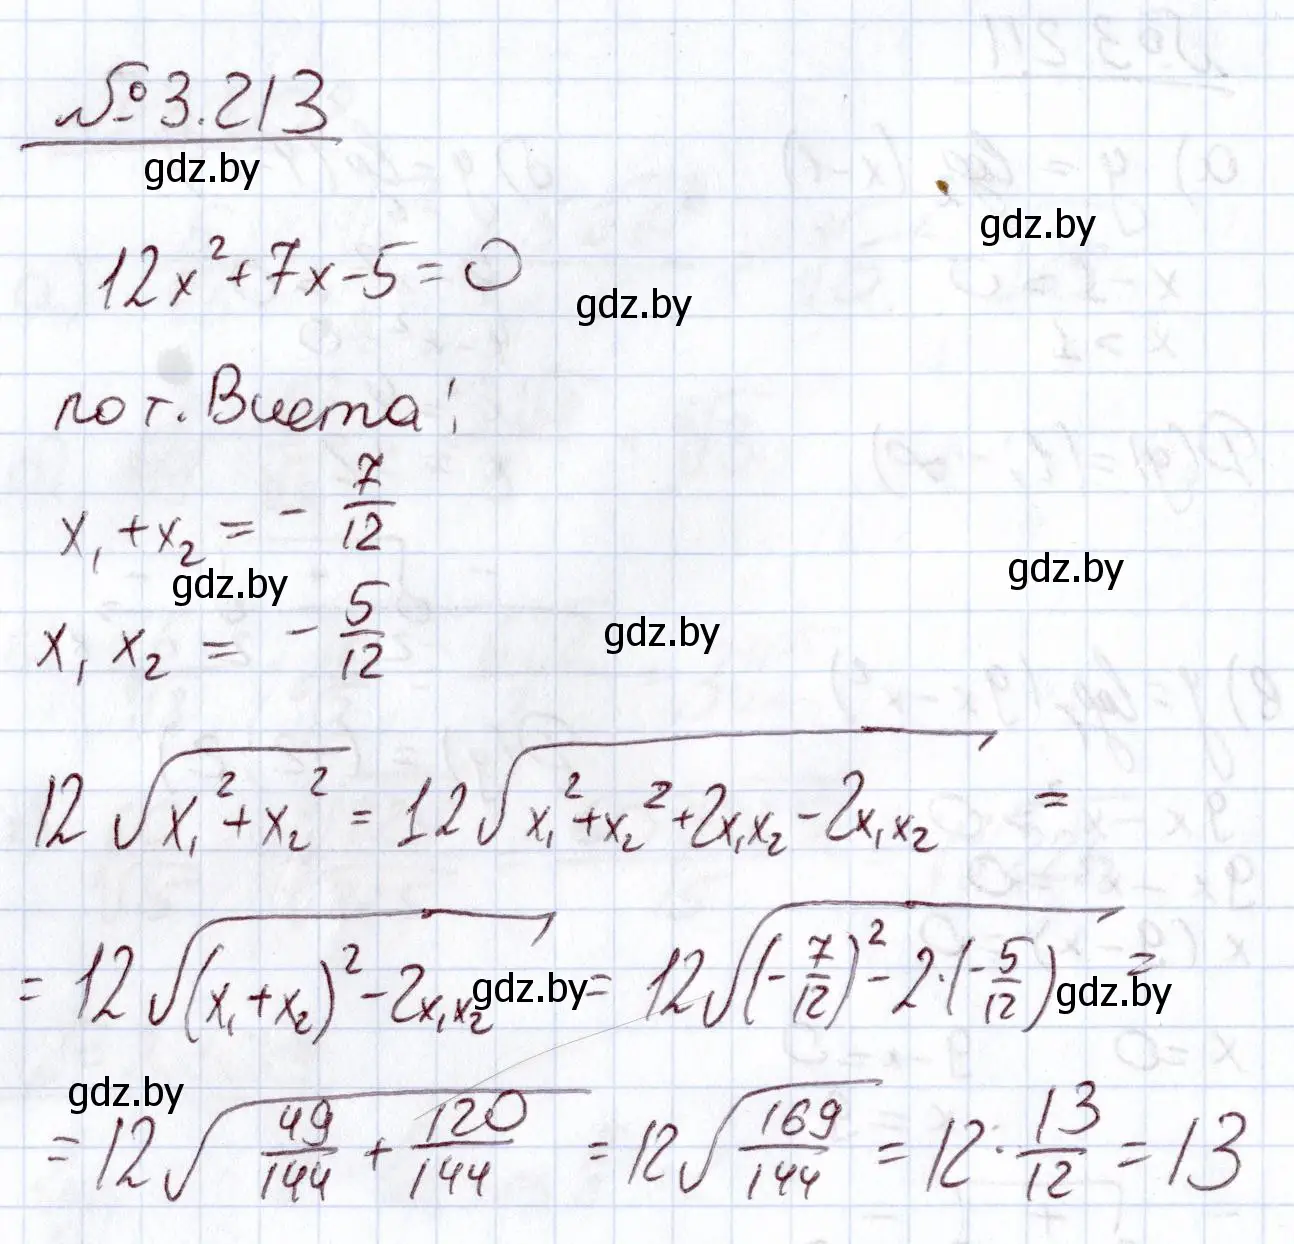 № 3.213
gdz.by
gdz.by
12x² + 7x - 5 = 0
gdz.by
по т. Виета:
x₁ + x₂ = - 7/12
gdz.by
gdz.by
x₁ x₂ = - 5/12
gdz.by
12 √(x₁² + x₂²) = 12 √(x₁² + x₂² + 2x₁x₂ - 2x₁x₂) =
= 12 √((x₁ + x₂)² - 2x₁x₂) = 12 √((- 7/12)² - 2·(- 5/12)) =
gdz.by
gdz.by
gdz.by
= 12 √(49/144 + 120/144) = 12 √(169/144) = 12 · 13/12 = 13